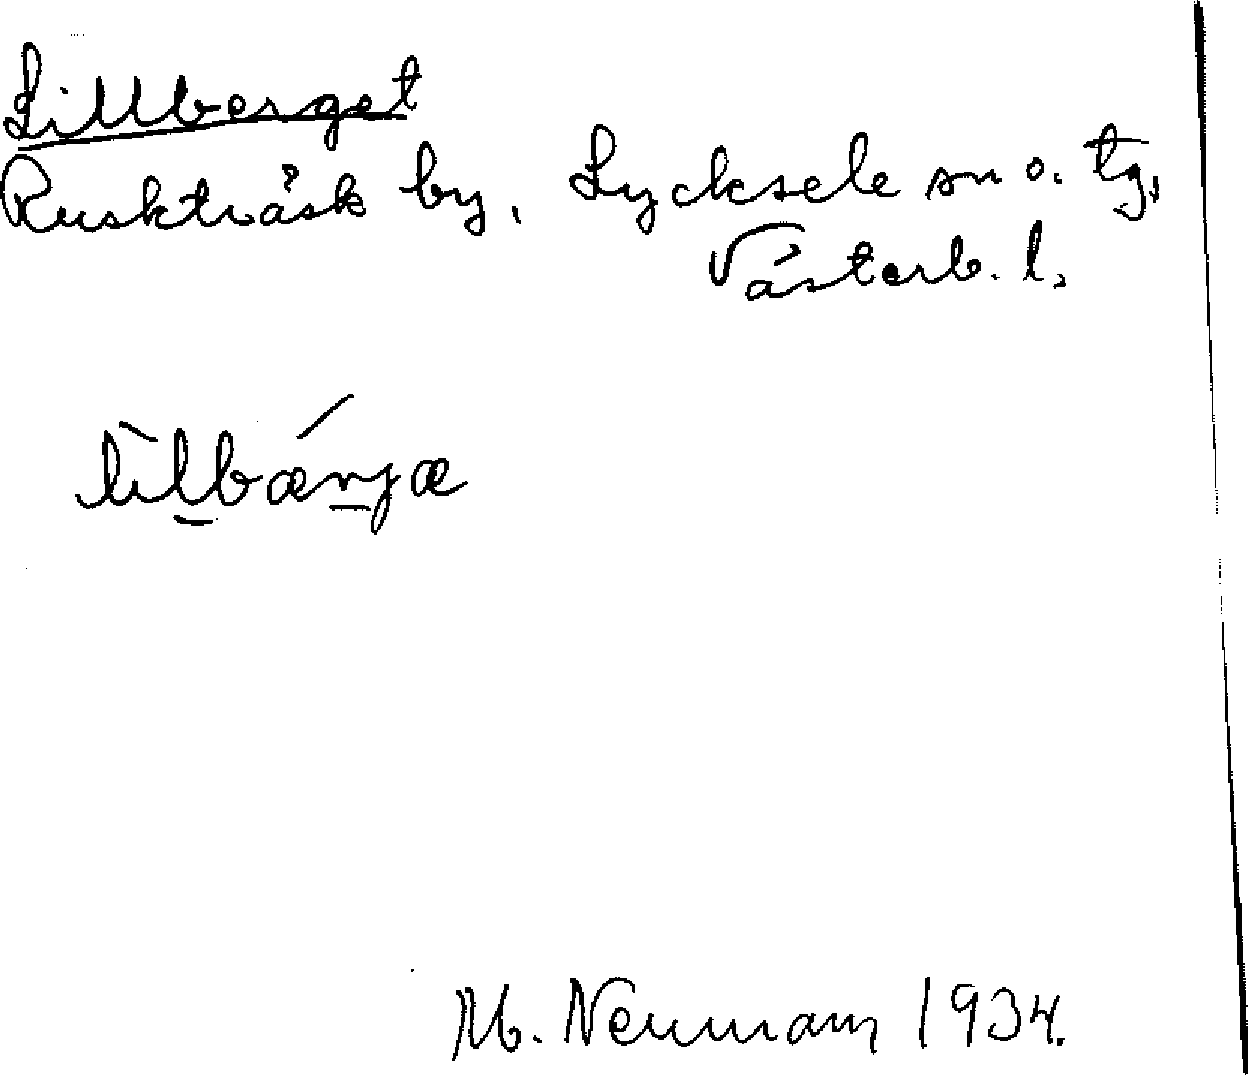 Lillberget
Ruskträsk by, Lycksele sn o. tg,
Västerb. l.
lìlbǽrjæ
M. Neuman 1934.